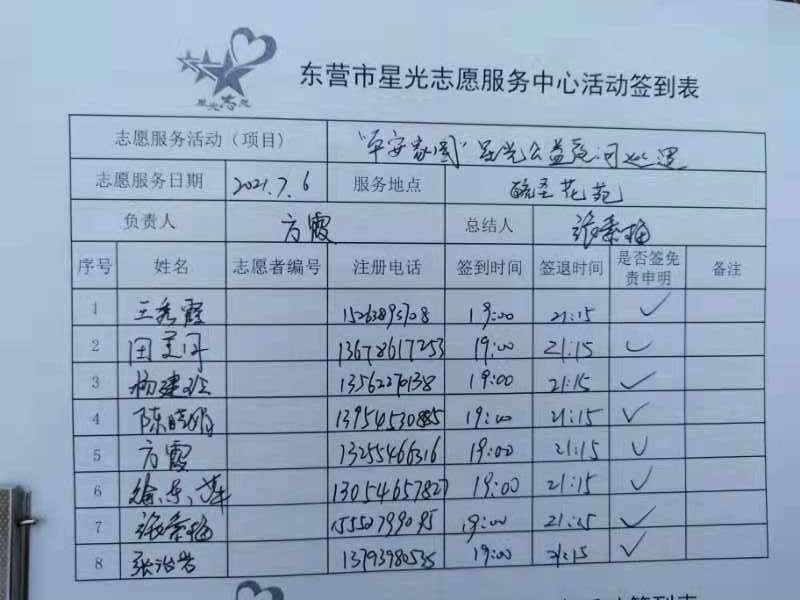 星光志愿
东营市星光志愿服务中心活动签到表
志愿服务活动（项目） "平安家园"星光公益夜间巡逻
志愿服务日期 2021.7.6 服务地点 花苑
负责人 方霞 总结人 张秀梅
序号 姓名 志愿者编号 注册电话 签到时间 签退时间 是否签免责申明 备注
1 王秀霞 15263893708 19:00 21:15 ✓
2 田 13678617253 19:00 21:15 ✓
3 杨建 13562270138 19:00 21:15 ✓
4 陈晓娟 13954530885 19:00 21:15 ✓
5 方霞 13255466316 19:00 21:15 ✓
6 徐东苹 13054657827 19:00 21:15 ✓
7 张秀梅 15550799095 19:00 21:15 ✓
8 张治岩 13793980535 19:00 21:15 ✓